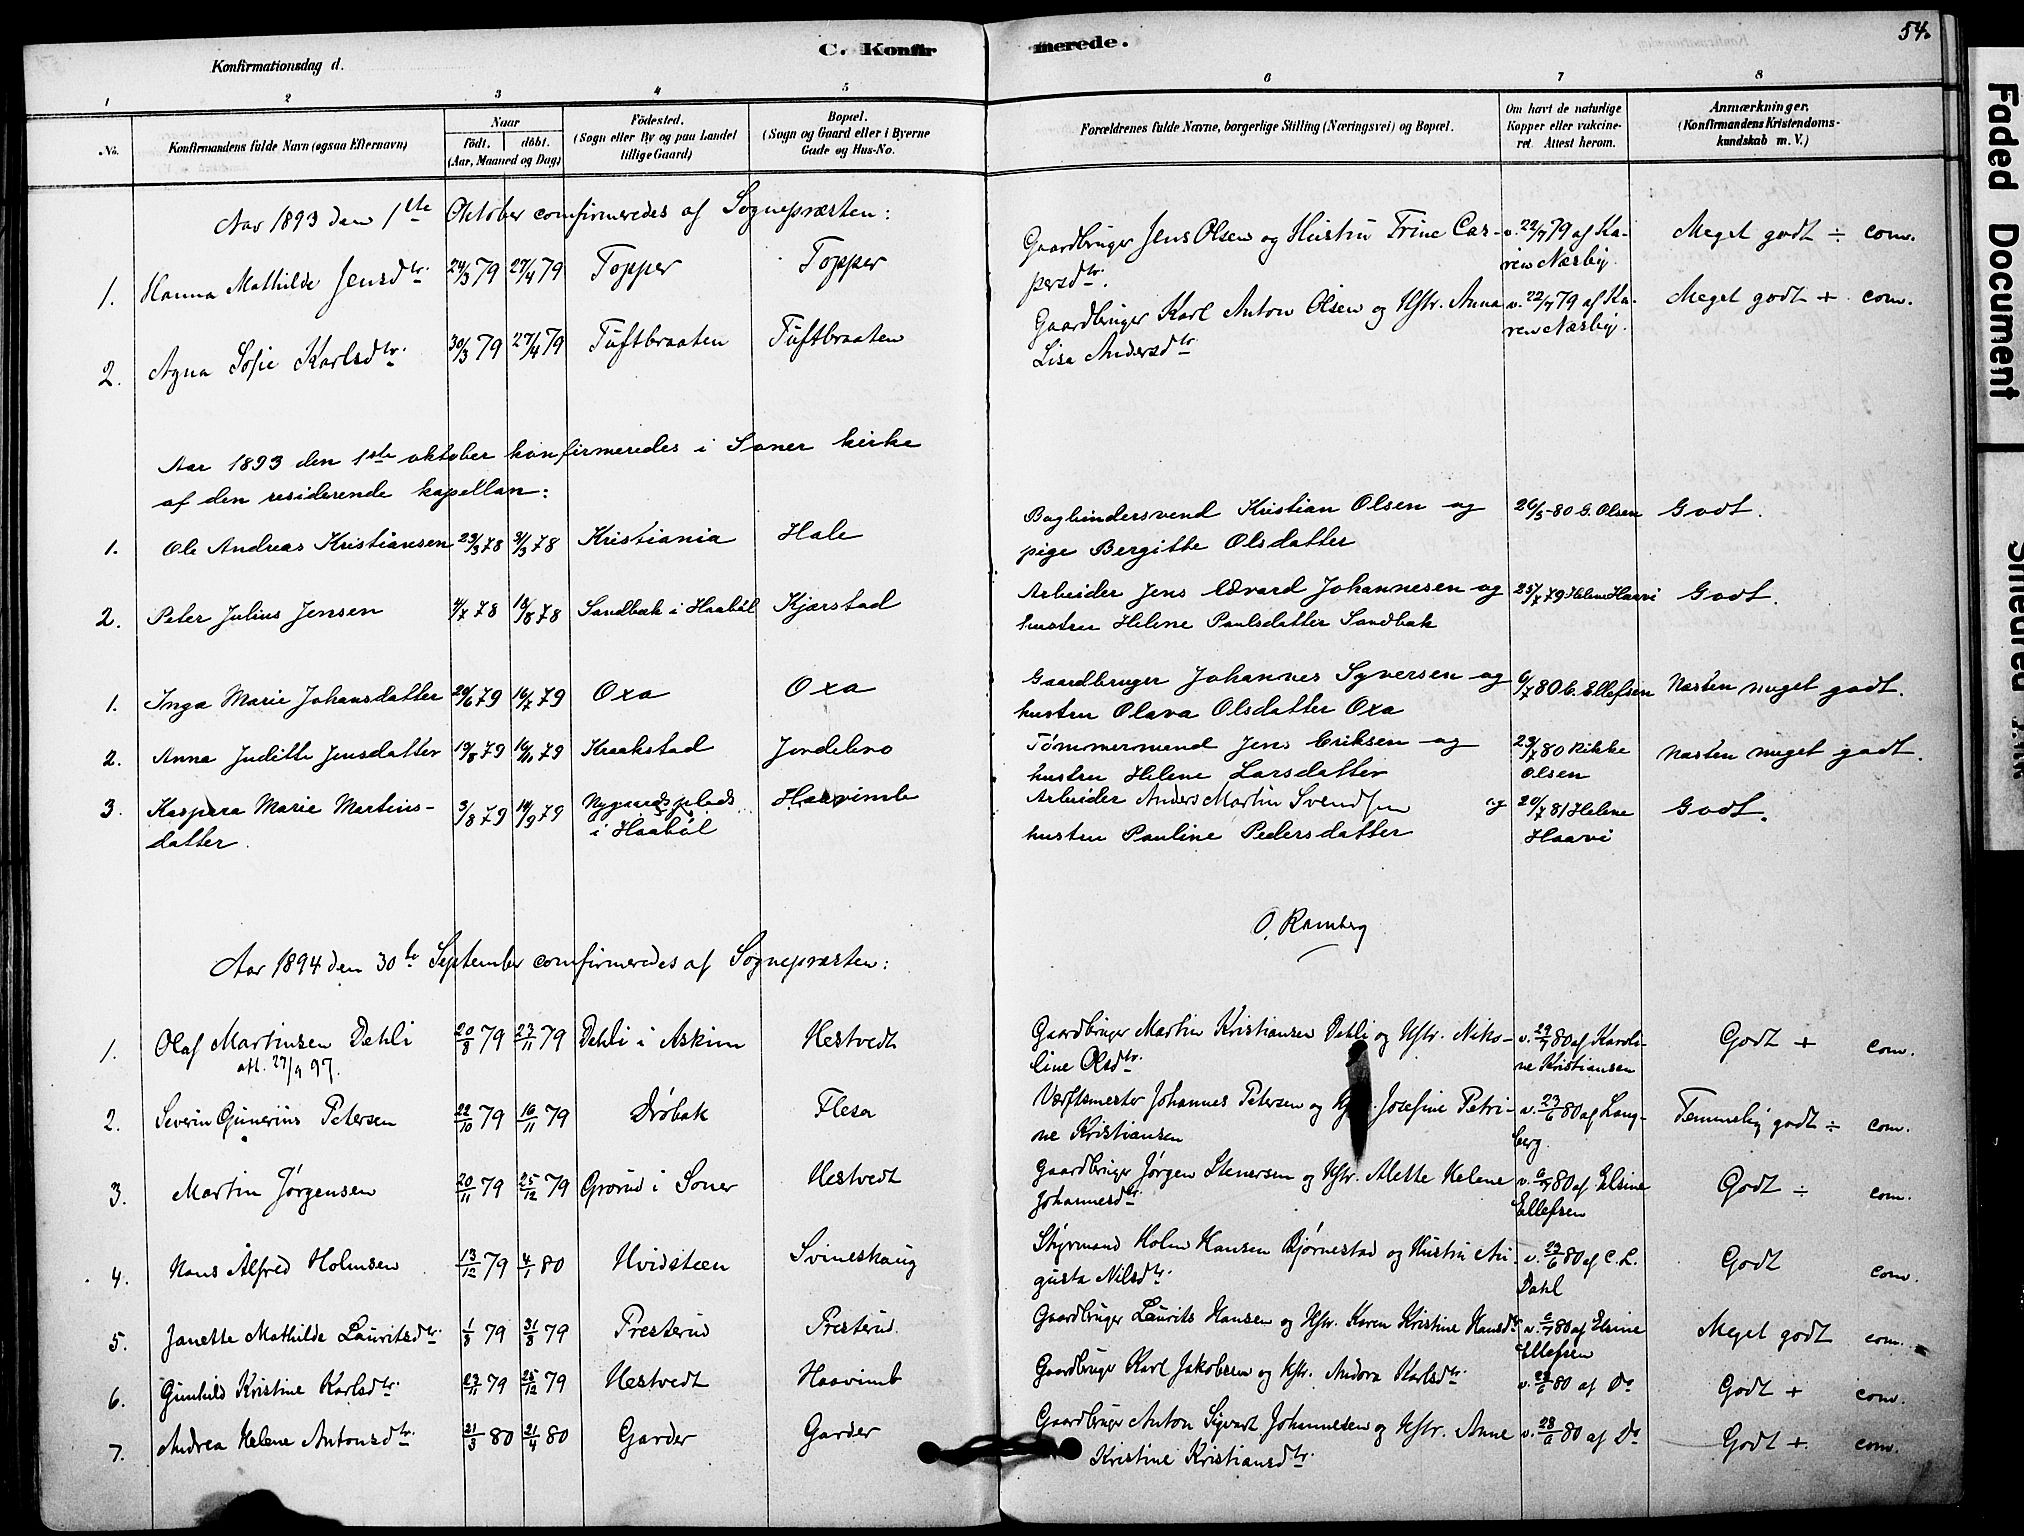 54.
C. Konfirmerede.
Konfirmationsdag d.
1 2 3 4 5 6 7 8
No. Konfirmandens fulde Navn (ogsaa Efternavn) Naar födt. döbt. (Aar, Maaned og Dag) Födested. (Sogn eller By og paa Landet tillige Gaard) Bopæl. (Sogn og Gaard eller i Byerne Gade og Hus-No. Forældrenes fulde Navne, borgerlige Stilling (Næringsvei) og Bopæl. Om havt de naturlige Kopper eller vakcineret. Attest herom. Anmærkninger. (Konfirmandens Kristendomskundskab m. V.)
Aar 1893 den 1ste Oktober comfirmeredes af Sognepræsten:
1. Hanna Mathilde Jensdtr. 24/3 79 27/4 79 Topper Topper Gaardbruger Jens Olsen og Hustru Trine Cas- v. 22/7 79 af Ka- Meget godt ÷ com.
persdtr. ren Næsby.
2. Agna Sofie Karlsdtr. 30/3 79 27/4 79 Tuftbraaten Tuftbraaten Gaardbruger Karl Anton Olsen og Hstr. Anna v. 22/7 79 af Ka- Meget godt + com.
Lisa Andersdtr. ren Næsby.
Aar 1893 den 1ste oktober konfirmeredes i Soner kirke
af den residerende kapellan:
1. Ole Andreas Kristiansen 23/3 78 31/3 78 Kristiania Hale Bogbindersvend Kristian Olsen og 26/5-80 G. Olsen Godt.
pige Bergitte Olsdatter
2. Peter Julius Jensen 4/7 78 18/8 78 Sandbæk i Haabøl Kjærstad Arbeider Jens Edvard Johannesen og 25/7 79 Helene Haavi Godt.
hustru Helene Paulsdatter Sandbæk
1. Inga Marie Johansdatter 20/6 79 16/7 79 Oxa Oxa Gaardbruger Johannes Syversen og 6/7 80 E. Ellefsen Næsten meget godt.
hustru Olava Olsdatter Oxa
2. Anna Juditte Jensdatter 19/8 79 16/11 79 Kraakstad Jordebro Tömmermand Jens Eriksen og 29/7 80 Rikke Næsten meget godt.
hustru Helene Larsdatter Olsen
3. Kaspara Marie Martins- 3/8 79 14/9 79 Nygaardsplads Haavimb Arbeider Anders Martin Svendsen og 20/7 81 Helene Godt.
datter. i Haabøl hustru Pauline Pedersdatter Haavi
O. Ramberg
Aar 1894 den 30te September comfirmeredes af Sognepræsten:
1. Olaf Martinsen Dehli 20/8 79 23/11 79 Dehli i Askim Hestvedt Gaardbruger Martin Kristiansen Dehli og Hstr. Niko- v. 29/7 80 af Karoli- Godt + com.
att. 27/9 97. line Olsdtr. ne Kristiansen
2. Severin Gunerius Petersen 22/10 79 16/11 79 Drøbak Flesa Værftsmester Johannes Petersen og Josefine Petri- v. 23/6 80 af Lang- Temmelig godt ÷ com.
ne Kristiansen berg.
3. Martin Jørgensen 20/11 79 25/12 79 Grorud i Soner Hestvedt Gaardbruger Jørgen Stenersen og Hstr. Alette Helene v. 6/7 80 af Elsine Godt ÷ com.
Johannesdtr. Ellefsen
4. Hans Alfred Holmsen 13/12 79 4/1 80 Hvidsteen Svineskaug Styrmand Holm Hansen Bjørnestad og Hustru Au- v. 23/6 80 af C. L. Godt com.
gusta Nilsdtr. Dahl
5. Janette Mathilde Lauritsdtr. 1/8 79 31/8 79 Presterud Presterud. Gaardbruger Laurits Hansen og Hstr. Karen Kristine Hansdtr. v. 6/7 80 af Elsine Meget godt com.
Ellefsen
6. Gunhild Kristine Karlsdtr. 23/11 79 25/12 79 Hestvedt Haavimb Gaardbruger Karl Jakobsen og Hstr. Andora Karlsdtr. v. 28/6 80 af Do Godt + com.
7. Andrea Helene Antonsdtr. 21/3 80 21/4 80 Garder Garder Gaardbruger Anton Sigvart Johannesen og Hstr. Anne v. 28/6 80 af Do Godt + com.
Kristine Kristiansdtr.
Faded Document